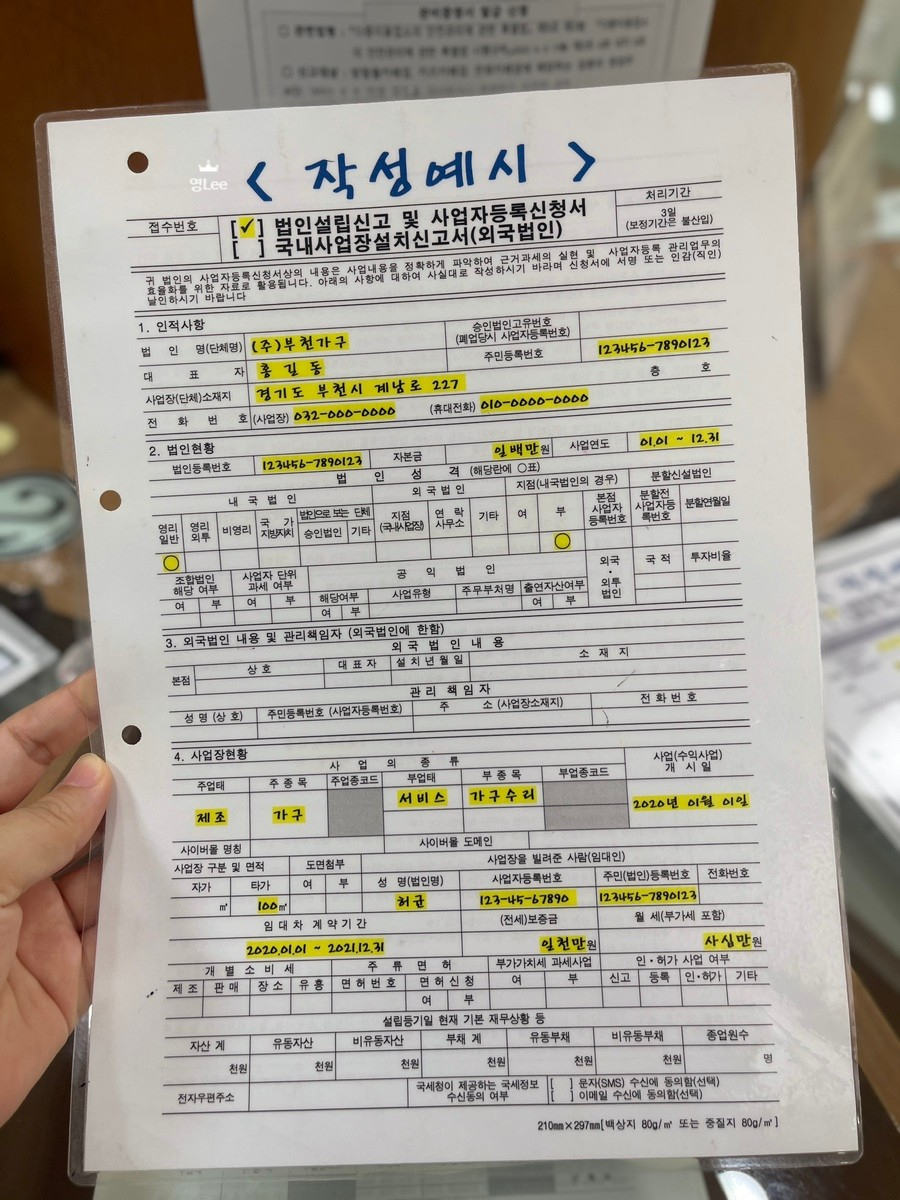 관련법령
영Lee
< 작성예시 >
접수번호
[✓] 법인설립신고 및 사업자등록신청서
[ ] 국내사업장설치신고서(외국법인)
처리기간
3일
(보정기간은 불산입)
귀 법인의 사업자등록신청서상의 내용은 사업내용을 정확하게 파악하여 근거과세의 실현 및 사업자등록 관리업무의
효율화를 위한 자료로 활용됩니다. 아래의 사항에 대하여 사실대로 작성하시기 바라며 신청서에 서명 또는 인감(직인)
날인하시기 바랍니다
1. 인적사항
법 인 명(단체명) (주)부천가구 승인법인고유번호
(폐업당시 사업자등록번호)
대 표 자 홍길동 주민등록번호 123456-7890123
사업장(단체)소재지 경기도 부천시 계남로 227 층 호
전 화 번 호 (사업장) 032-000-0000 (휴대전화) 010-0000-0000
2. 법인현황
법인등록번호 123456-7890123 자본금 일백만원 사업연도 01.01 ~ 12.31
법 인 성 격 (해당란에 ○표)
내 국 법 인 외 국 법 인 지점(내국법인의 경우) 분할신설법인
영리일반 영리외투 비영리 국 가 지방자치 법인으로 보는 단체 승인법인 기타 지점(국내사업장) 연 락 사무소 기타 여 부 본점 사업자 등록번호 분할전 사업자등록번호 분할연월일
○ ○
조합법인 해당 여부 사업자 단위 과세 여부 공 익 법 인 외국·외투법인 국 적 투자비율
여 부 여 부 해당여부 사업유형 주무부처명 출연자산여부
여 부 여 부
3. 외국법인 내용 및 관리책임자 (외국법인에 한함)
외 국 법 인 내 용
본점 상 호 대 표 자 설 치 년 월 일 소 재 지
관 리 책 임 자
성 명 (상 호) 주민등록번호 (사업자등록번호) 주 소 (사업장소재지) 전 화 번 호
4. 사업장현황
사 업 의 종 류 사업(수익사업)
개 시 일
주업태 주 종 목 주업종코드 부업태 부 종 목 부업종코드
제조 가구 서비스 가구수리 2020년 01월 01일
사이버몰 명칭 사이버몰 도메인
사업장 구분 및 면적 도면첨부 사업장을 빌려준 사람(임대인)
자가 타가 여 부 성 명(법인명) 사업자등록번호 주민(법인)등록번호 전화번호
㎡ 100㎡ 허균 123-45-67890 123456-7890123
임 대 차 계 약 기 간 (전세)보증금 월 세(부가세 포함)
2020.01.01 ~ 2021.12.31 일천만원 사십만원
개 별 소 비 세 주 류 면 허 부가가치세 과세사업 인·허가 사업 여부
제 조 판 매 장 소 유 흥 면 허 번 호 면 허 신 청 여 부 신고 등록 인·허가 기타
여 부
설립등기일 현재 기본 재무상황 등
자산 계 유동자산 비유동자산 부채 계 유동부채 비유동부채 종업원수
천원 천원 천원 천원 천원 천원 명
전자우편주소 국세청이 제공하는 국세정보
수신동의 여부
[ ] 문자(SMS) 수신에 동의함(선택)
[ ] 이메일 수신에 동의함(선택)
210㎜×297㎜[백상지 80g/㎡ 또는 중질지 80g/㎡]